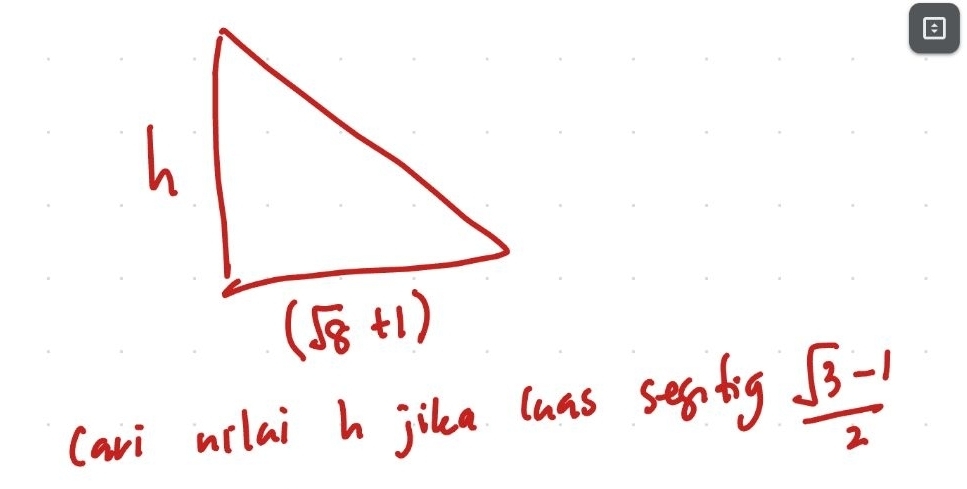 h
(√8 +1)
Cari nilai h jika luas segitig √3-1/2